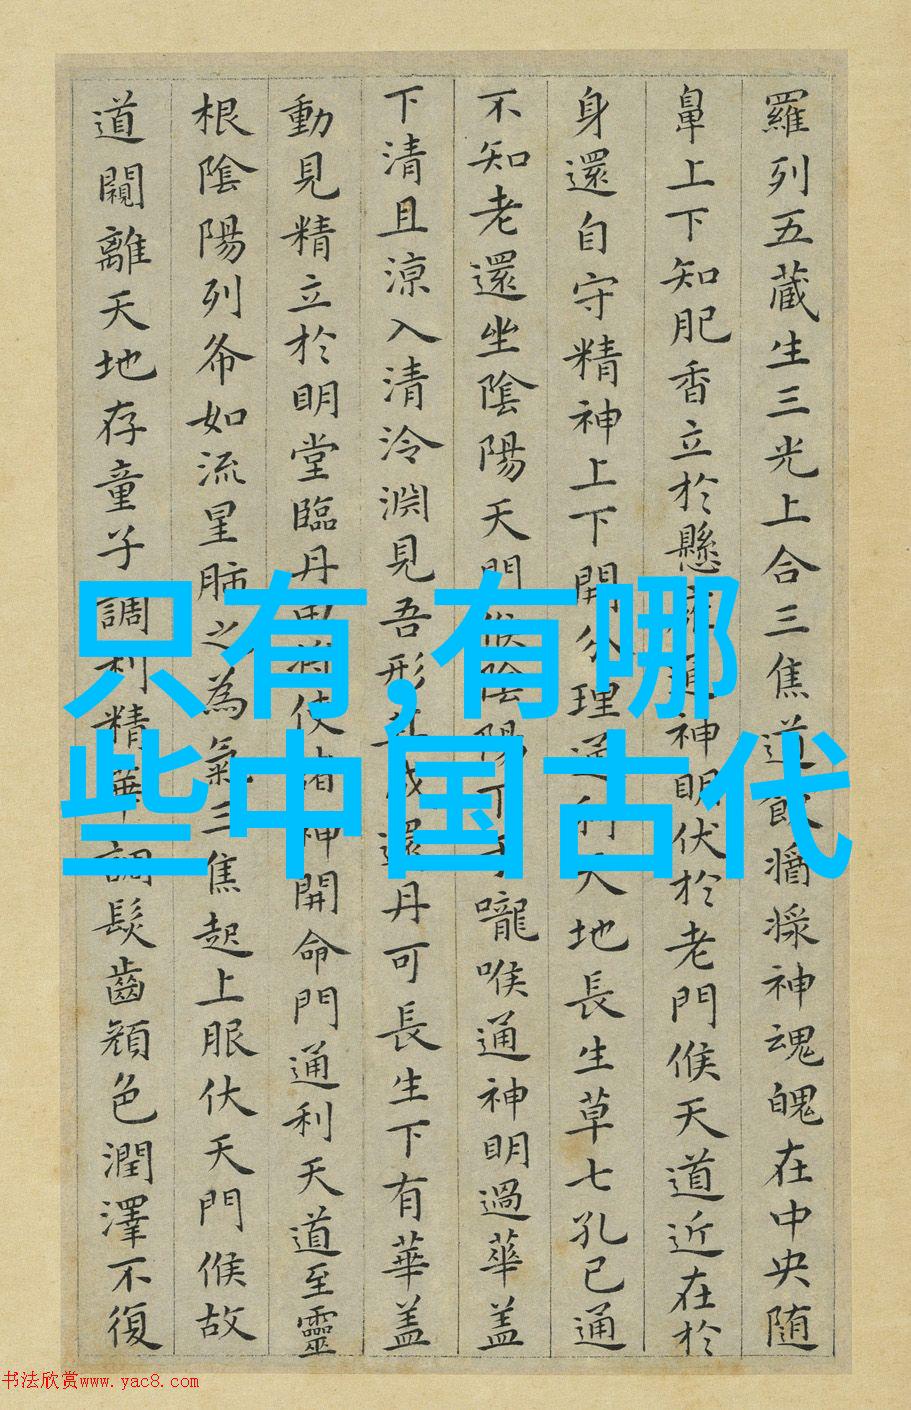 羅列五藏生三光上合三焦道飲醬漿神魂魄在中央随
鼻上下知肥香立於懸
通神明伏於老門候天道近在於
身還自守精神上下開分理通利天地長生草七孔已通
不知老還坐陰陽天門候陰陽下于嚨喉通神明過華盖
下清且涼入清泠渊見吾形其成還丹可長生下有華盖
動見精立於明堂臨丹田将使諸神開命門通利天道至靈
根陰陽列布如流星肺之為氣三焦起上服伏天門候故
道闚離天地存童子調利精華調髮齒顔色潤澤不復
只有,有哪
些中国古代
书法欣赏www.yac8.com